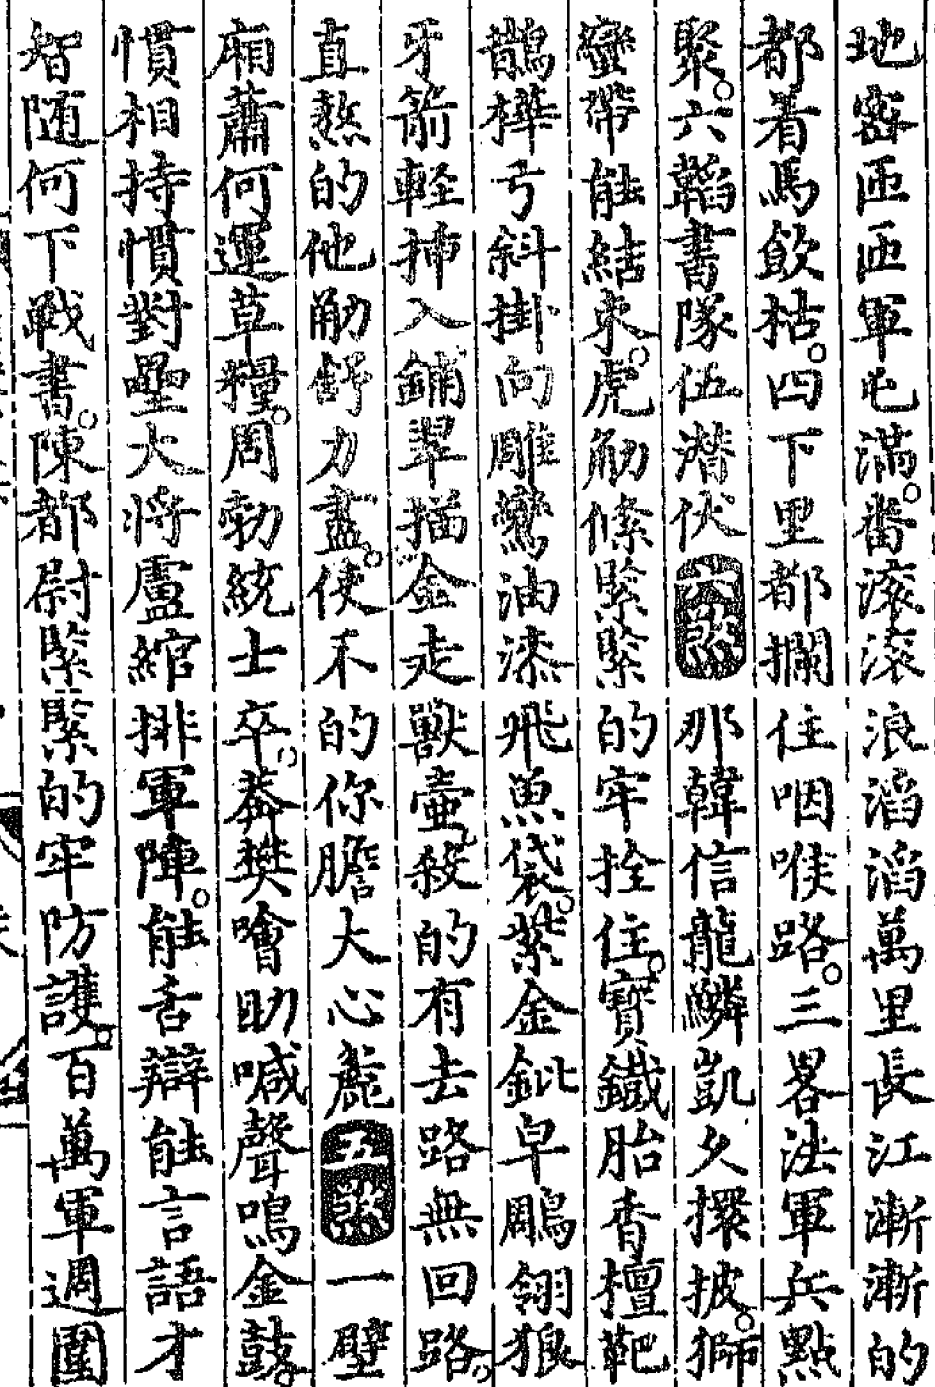 地密匝匝軍屯滿。番滚滚浪滔滔萬里長江漸漸的
都着馬飲枯。四下里都攔住咽喉路。三畧法軍兵點
聚。六韜書隊伍潜伏六煞那韓信龍鱗凱久擐披。獅
蠻帶能結束。虎筋絛緊緊的牢拴住。寶鐵胎香檀靶
鵲樺弓斜掛向雕鸞油漆飛魚袋。紫金鈚皁鵰翎狼
牙箭軽揷入鋪翠描金走獸壷。殺的有去路無回路。
直熬的他觔舒力盡。使不的你膽大心麄五煞一壁
廂蕭何運草糧。周勃統士卒。養樊噲助喊聲鳴金鼓。
慣相持慣對壘大將盧綰排軍陣。能舌辯能言語才
智随何下戰書。陳都尉緊緊的牢防護。百萬軍週圍